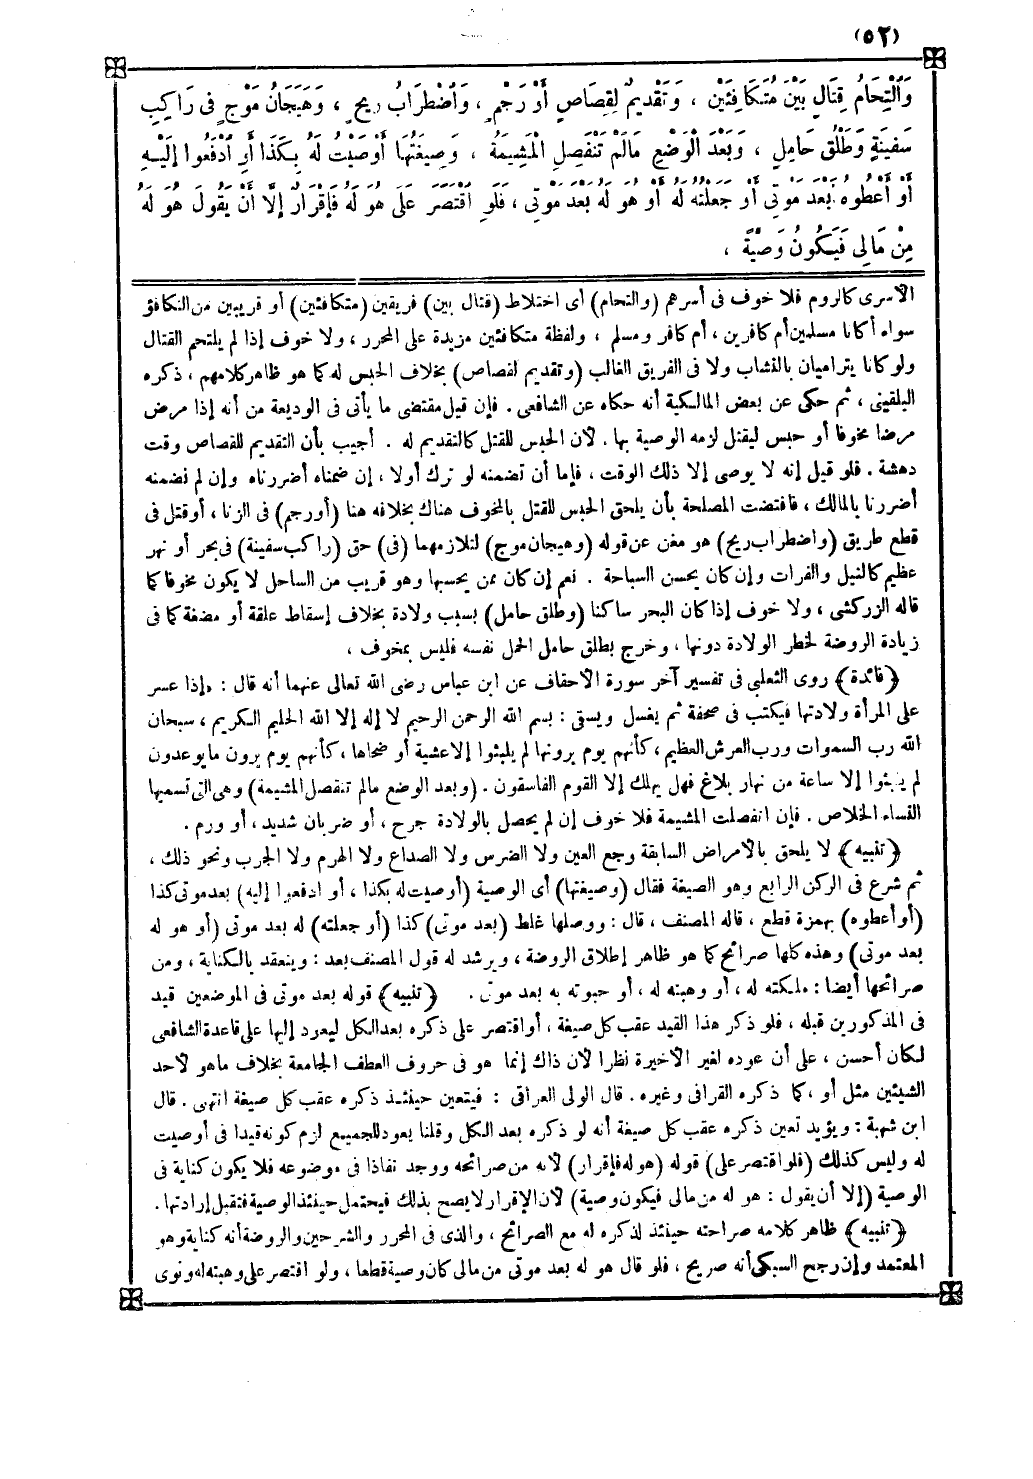 (٥٢)
وَالْتِحَامُ قِتَالٍ بَيْنَ مُتَكَافِئَيْنِ ، وَتَقْدِيمٌ لِقِصَاصٍ أَوْ رَجْمٍ ، وَاضْطِرَابُ رِيحٍ ، وَهَيَجَانُ مَوْجٍ فِى رَاكِبِ
سَفِينَةٍ وَطَلْقُ حَامِلٍ ، وَبَعْدَ الْوَضْعِ مَالَمْ تَنْفَصِلِ الْمَشِيمَةُ ، وَصِيغَتُهَا أَوْصَيْتُ لَهُ بِكَذَا أَوِ ادْفَعُوا إِلَيْهِ
أَوْ أَعْطُوهُ بَعْدَ مَوْتِى أَوْ جَعَلْتُهُ لَهُ أَوْ هُوَ لَهُ بَعْدَ مَوْتِى ، فَلَوِ اقْتَصَرَ عَلَى هُوَ لَهُ فَإِقْرَارٌ إِلَّا أَنْ يَقُولَ هُوَ لَهُ
مِنْ مَالِى فَيَكُونُ وَصِيَّةً ،
الأسرى كالروم فلا خوف فى أسرهم (والتحام) أى اختلاط (قتال بين) فريقين (متكافئين) أو قريبين من التكافؤ
سواء أكانا مسلمين أم كافرين ، أم كافر ومسلم ، ولفظة متكافئين مزيدة على المحرر ، ولا خوف إذا لم يلتحم القتال
ولو كانا يتراميان بالنشاب ولا فى الفريق الغالب (وتقديم لقصاص) بخلاف الحبس له كما هو ظاهر كلامهم ، ذكره
البلقينى ، ثم حكى عن بعض المالكية أنه حكاه عن الشافعى . فإن قيل مقتضى ما يأتى فى الوديعة من أنه إذا مرض
مرضا مخوفا أو حبس ليقتل لزمه الوصية بها . لأن الحبس للقتل كالتقديم له . أجيب بأن التقديم للقصاص وقت
دهشة . فلو قيل إنه لا يوصى إلا ذلك الوقت ، فإما أن تضمنه لو ترك أولا ، إن ضمناه أضررناه وإن لم نضمنه
أضررنا بالمالك ، فاقتضت المصلحة بأن يلحق الحبس للقتل بالمخوف هناك بخلافه هنا (أو رجم) فى الزنا ، أو قتل فى
قطع طريق (واضطراب ريح) هو مغن عن قوله (وهيجان موج) لتلازمهما (فى) حق (راكب سفينة) فى بحر أو نهر
عظيم كالنيل والفرات وإن كان يحسن السباحة . نعم إن كان ممن يحسنها وهو قريب من الساحل لا يكون مخوفا كما
قاله الزركشى ، ولا خوف إذا كان البحر ساكنا (وطلق حامل) بسبب ولادة بخلاف إسقاط علقة أو مضغة كما فى
زيادة الروضة لخطر الولادة دونها ، وخرج بطلق حامل الحمل نفسه فليس بمخوف ،
﴿فائدة﴾ روى الثعلبى فى تفسير آخر سورة الأحقاف عن ابن عباس رضى الله تعالى عنهما أنه قال : «إذا عسر
على المرأة ولادتها فيكتب فى صحفة ثم يغسل ويسقى : بسم الله الرحمن الرحيم لا إله إلا الله الحليم الكريم ، سبحان
الله رب السموات ورب العرش العظيم ، كأنهم يوم يرونها لم يلبثوا إلا عشية أو ضحاها ، كأنهم يوم يرون ما يوعدون
لم يلبثوا إلا ساعة من نهار بلاغ فهل يهلك إلا القوم الفاسقون . (وبعد الوضع مالم تنفصل المشيمة) وهى التى تسميها
النساء الخلاص . فإن انفصلت المشيمة فلا خوف إن لم يحصل بالولادة جرح ، أو ضربان شديد ، أو ورم .
﴿تنبيه﴾ لا يلحق بالأمراض السابقة وجع العين ولا الضرس ولا الصداع ولا الهرم ولا الجرب ونحو ذلك ،
ثم شرع فى الركن الرابع وهو الصيغة فقال (وصيغتها) أى الوصية (أوصيت له بكذا ، أو ادفعوا إليه) بعد موتى كذا
(أو أعطوه) بهمزة قطع ، قاله المصنف ، قال : ووصلها غلط (بعد موتى) كذا (أو جعلته) له بعد موتى (أو هو له
بعد موتى) وهذه كلها صرائح كما هو ظاهر إطلاق الروضة ، ويرشد له قول المصنف بعد : وينعقد بالكناية ، ومن
صرائحها أيضا : ملكته له ، أو وهبته له ، أو حبوته به بعد موتى . ﴿تنبيه﴾ قوله بعد موتى فى الموضعين قيد
فى المذكورين قبله ، فلو ذكر هذا القيد عقب كل صيغة ، أو اقتصر على ذكره بعد الكل ليعود إليها على قاعدة الشافعى
لكان أحسن ، على أن عوده لغير الأخيرة نظرا لأن ذاك إنما هو فى حروف العطف الجامعة بخلاف ماهو لأحد
الشيئين مثل أو ، كما ذكره القرافى وغيره . قال الولى العراقى : فيتعين حينئذ ذكره عقب كل صيغة انتهى . قال
ابن شهبة : ويؤيد تعين ذكره عقب كل صيغة أنه لو ذكره بعد الكل وقلنا يعود للجميع لزم كونه قيدا فى أوصيت
له وليس كذلك (فلو اقتصر على) قوله (هو له فإقرار) لأنه من صرائحه ووجد نفاذا فى موضوعه فلا يكون كناية فى
الوصية (إلا أن يقول : هو له من مالى فيكون وصية) لأن الإقرار لا يصح بذلك فيحتمل حينئذ الوصية فتقبل إرادتها .
﴿تنبيه﴾ ظاهر كلامه صراحته حينئذ لذكره له مع الصرائح ، والذى فى المحرر والشرحين والروضة أنه كناية وهو
المعتمد وإن رجح السبكى أنه صريح ، فلو قال هو له بعد موتى من مالى كان وصية قطعا ، ولو اقتصر على وهبته له ونوى